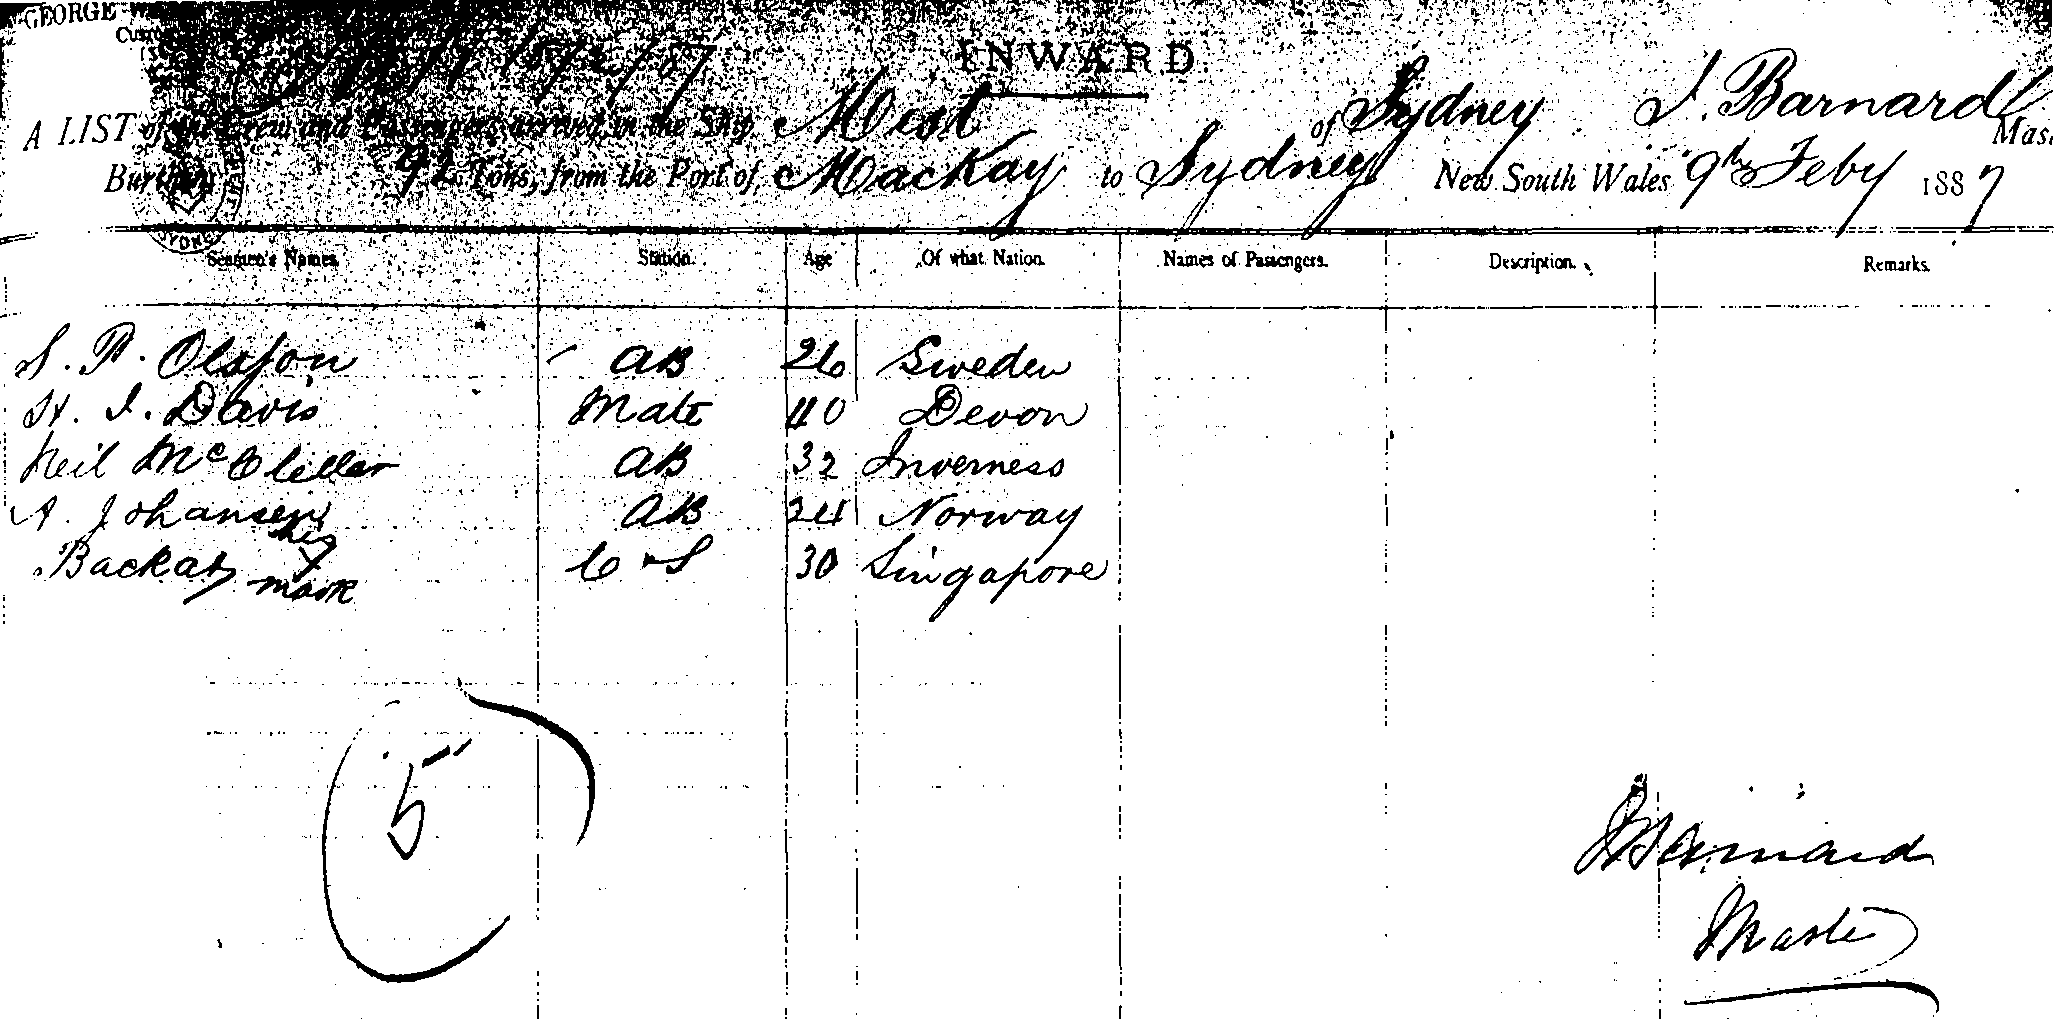 GEORGE
INWARD
A LIST of the Crew and Passengers arrived in the Ship Mist of Sydney J. Barnard Mas
Burthen 92 Tons, from the Port of MacKay to Sydney New South Wales 9th Feby 1887
SYDNEY
Seamen's Names. Station. Age Of what Nation. Names of Passengers. Description. Remarks.
S. P. Olsson AB 26 Sweden
H. J. Davis Mate 40 Devon
Neil McClellar AB 32 Inverness
A. Johansen AB 24 Norway
his
Backas x C & S 30 Singapore
mark
5
J Barnard
Master